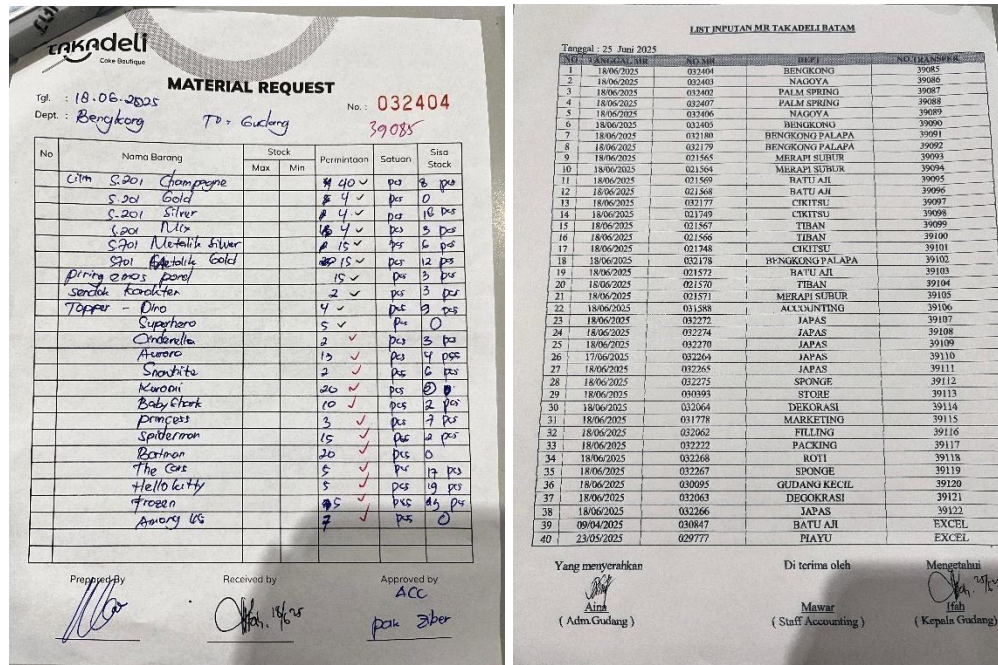 TAKAdeli
Cake Boutique
MATERIAL REQUEST
Tgl. : 18.06.2025
No. : 032404
Dept. : Bengkong TO = Gudang
39085
No Nama Barang Stock Max Min Permintaan Satuan Sisa Stock
Lilin S.201 Champagne 40 pcs 8 pcs
S.201 Gold 4 pcs 0
S.201 Silver 4 pcs 18 pcs
S.201 Mix 4 pcs 3 pcs
S.701 Metalik Silver 15 pcs 6 pcs
S701 Metalik Gold 15 pcs 12 pcs
Piring emas ponel 15 pcs 3 pcs
sendok karakter 2 pcs 3 pcs
Topper - Dino 4 pcs 9 pcs
Superhero 5 pcs 0
Cinderella 2 pcs 3 pcs
Aurora 13 pcs 4 pcs
Snowhite 2 pcs 6 pcs
Kuromi 20 pcs
Baby Shark 10 pcs 2 pcs
princess 3 pcs 7 pcs
Spiderman 15 pcs 2 pcs
Batman 20 pcs 0
The Cars 5 pcs 17 pcs
Hello kitty 5 pcs 19 pcs
Frozen pcs pcs
Among US 7 pcs 0
Prepared By Received by Approved by
Ifah. 18/6 25
ACC
pak Ziber
LIST INPUTAN MR TAKADELI BATAM
Tanggal : 25 Juni 2025
NO TANGGAL MR NO MR DEPT NO. TRANSFER
1 18/06/2025 032404 BENGKONG 39085
2 18/06/2025 032403 NAGOYA 39086
3 18/06/2025 032402 PALM SPRING 39087
4 18/06/2025 032407 PALM SPRING 39088
5 18/06/2025 032406 NAGOYA 39089
6 18/06/2025 032405 BENGKONG 39090
7 18/06/2025 032180 BENGKONG PALAPA 39091
8 18/06/2025 032179 BENGKONG PALAPA 39092
9 18/06/2025 021565 MERAPI SUBUR 39093
10 18/06/2025 021564 MERAPI SUBUR 39094
11 18/06/2025 021569 BATU AJI 39095
12 18/06/2025 021568 BATU AJI 39096
13 18/06/2025 032177 CIKITSU 39097
14 18/06/2025 021749 CIKITSU 39098
15 18/06/2025 021567 TIBAN 39099
16 18/06/2025 021566 TIBAN 39100
17 18/06/2025 021748 CIKITSU 39101
18 18/06/2025 032178 BENGKONG PALAPA 39102
19 18/06/2025 021572 BATU AJI 39103
20 18/06/2025 021570 TIBAN 39104
21 18/06/2025 021571 MERAPI SUBUR 39105
22 18/06/2025 031588 ACCOUNTING 39106
23 18/06/2025 032272 JAPAS 39107
24 18/06/2025 032274 JAPAS 39108
25 18/06/2025 032270 JAPAS 39109
26 17/06/2025 032264 JAPAS 39110
27 18/06/2025 032265 JAPAS 39111
28 18/06/2025 032275 SPONGE 39112
29 18/06/2025 030393 STORE 39113
30 18/06/2025 032064 DEKORASI 39114
31 18/06/2025 031778 MARKETING 39115
32 18/06/2025 032062 FILLING 39116
33 18/06/2025 032222 PACKING 39117
34 18/06/2025 032268 ROTI 39118
35 18/06/2025 032267 SPONGE 39119
36 18/06/2025 030095 GUDANG KECIL 39120
37 18/06/2025 032063 DEGOKRASI 39121
38 18/06/2025 032266 JAPAS 39122
39 09/04/2025 030847 BATU AJI EXCEL
40 23/05/2025 029777 PIAYU EXCEL
Yang menyerahkan Di terima oleh Mengetahui
Aina Mawar Ifah
( Adm.Gudang ) ( Staff Accounting ) ( Kepala Gudang )